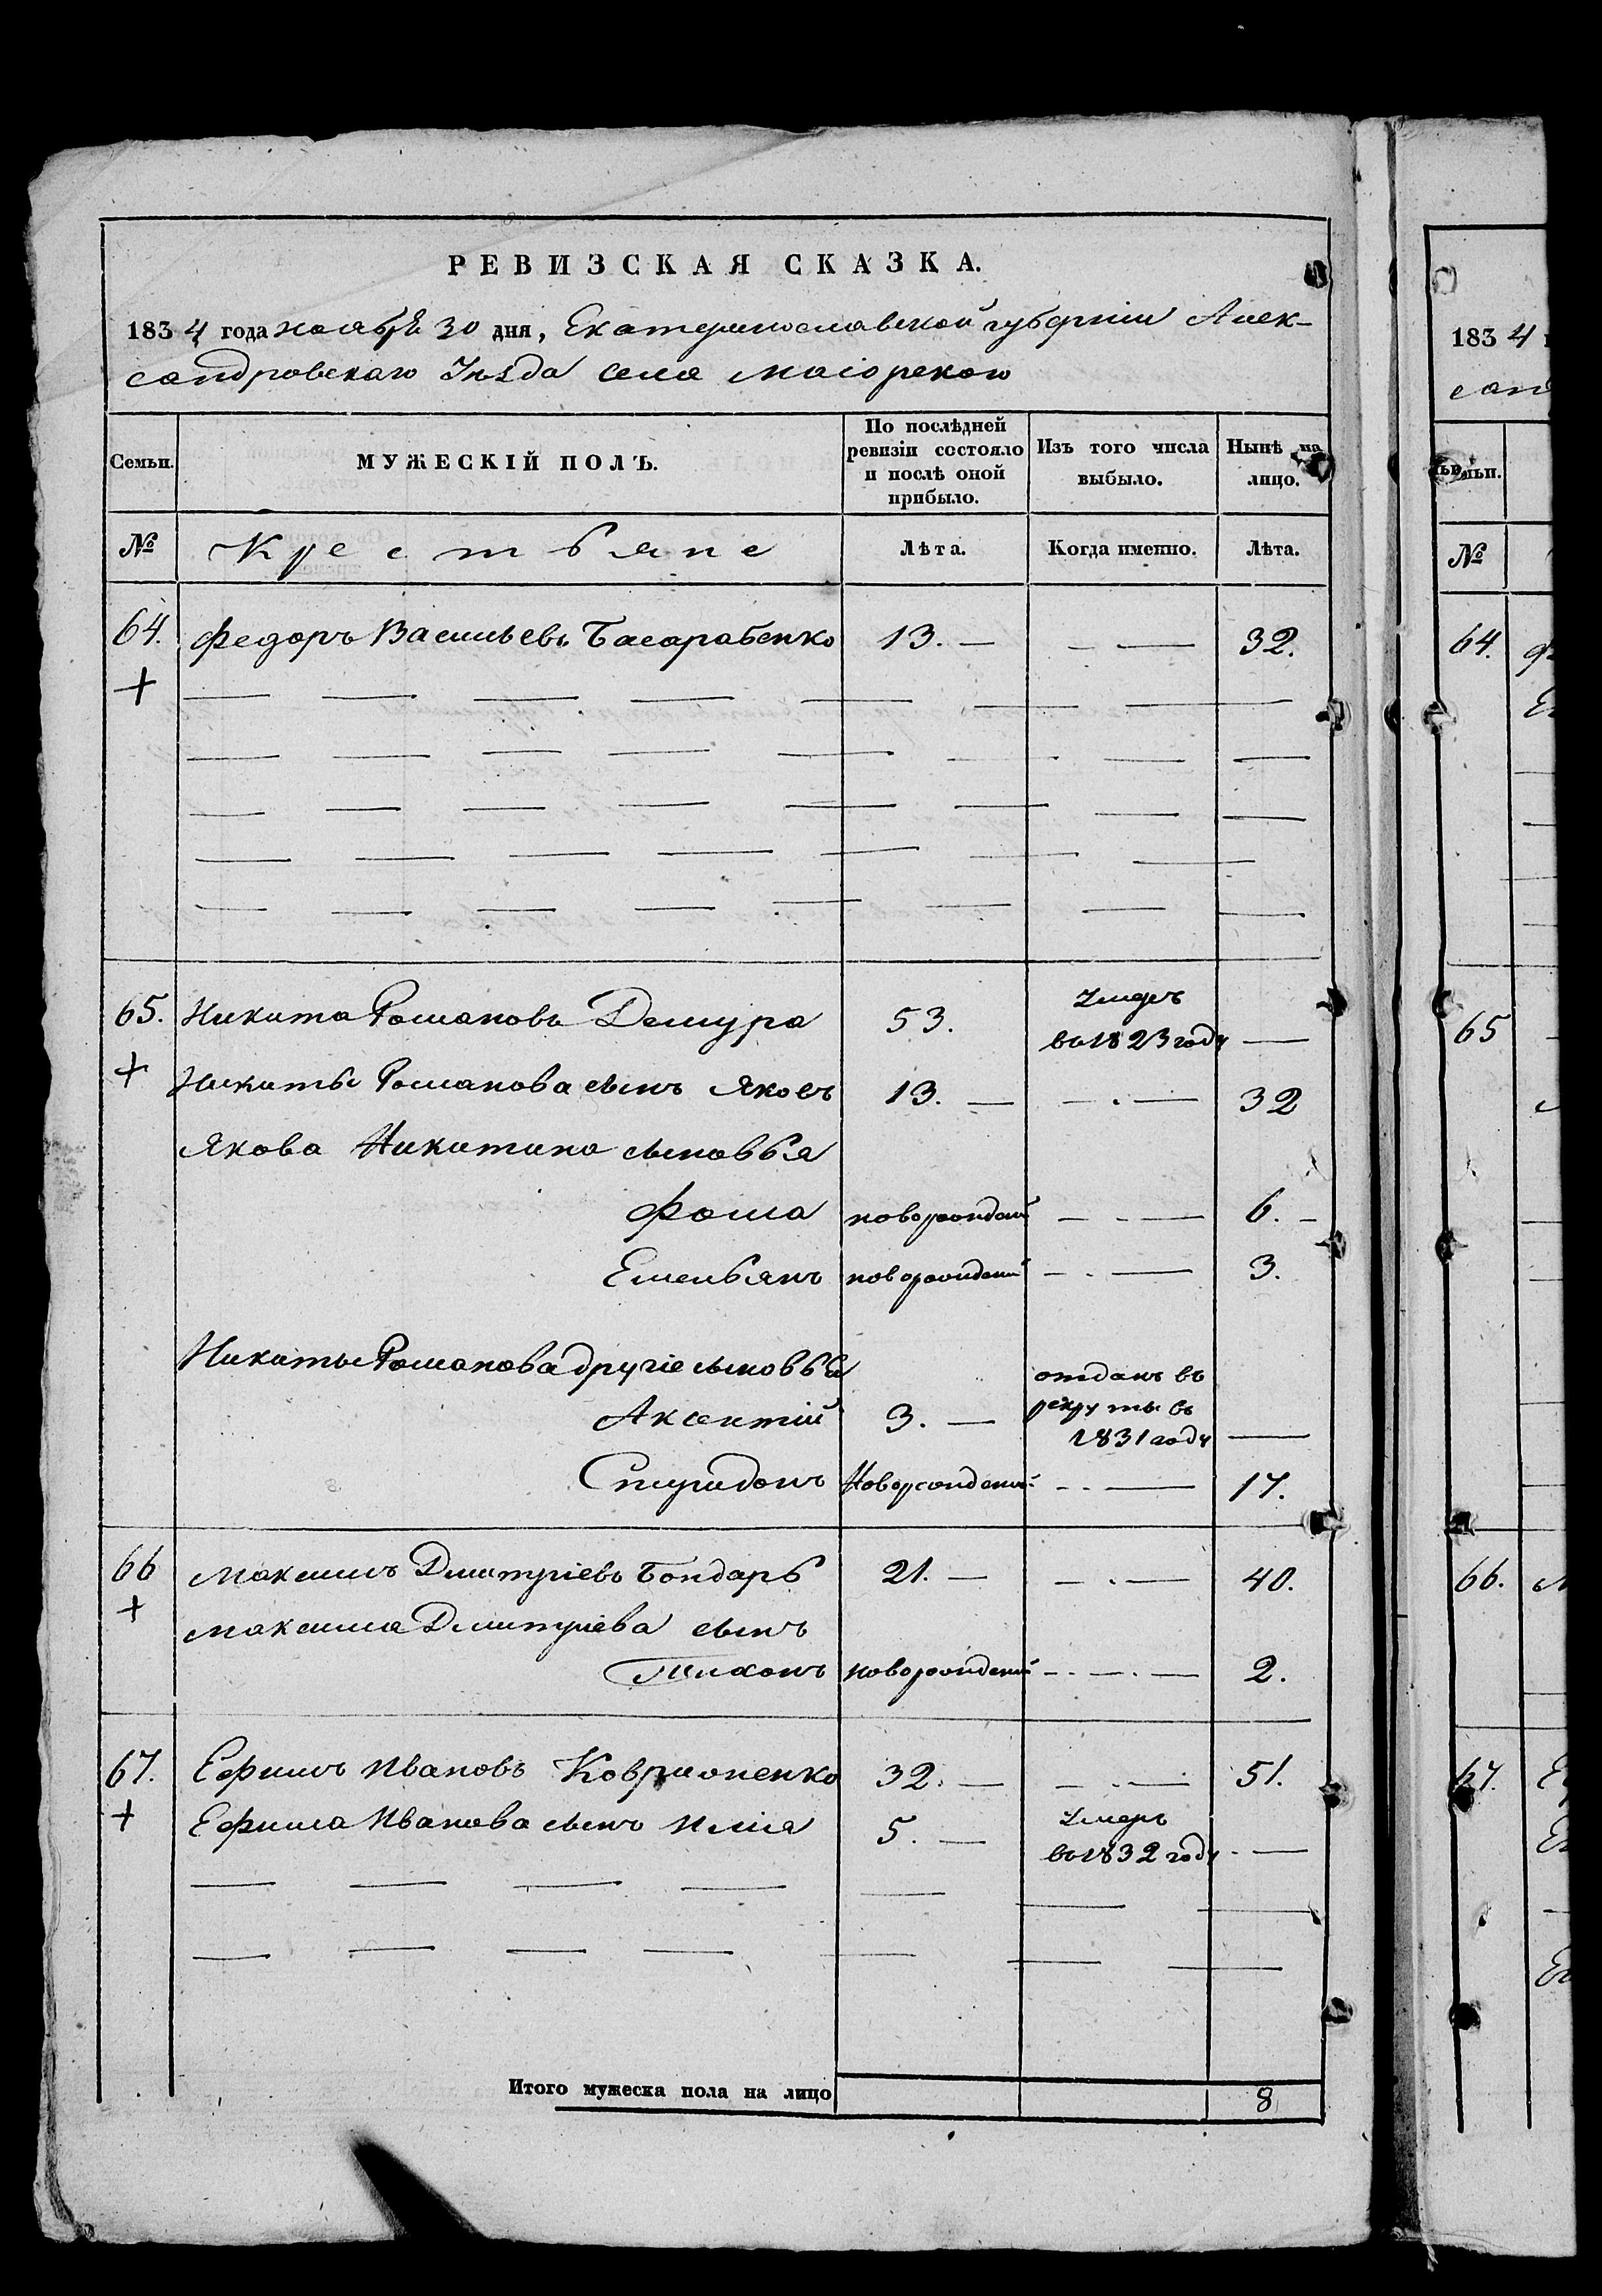 РЕВИЗСКАЯ СКАЗКА.
1834 года ноября 30 дня, Екатеринославской губернiи Алек-
сандровскаго Уѣзда села Маiорскаго
Семьи. МУЖЕСКIЙ ПОЛЪ. По послѣдней ревизiи состояло и послѣ оной прибыло. Изъ того числа выбыло. Нынѣ на лицо.
№ Крестьяне Лѣта. Когда именно. Лѣта.
64. Федоръ Васильевъ Басарабенко 13. — — — 32.
65. Никита Романовъ Демура 53. Умеръ въ 1823 году —
Никиты Романова сынъ Яковъ 13. — — 32
Якова Никитина сыновья
Фома новорожденый — — 6.
Емельянъ новорожденый — — 3.
Никиты Романова другiе сыновья
Аксентiй 3. — отданъ въ рекруты въ 1831 году —
Спиридонъ Новорожденый — — 17.
66 Максимъ Дмитрiевъ Бондарь 21. — — — 40.
Максима Дмитрiева сынъ
Тихонъ новорожденый — — 2.
67. Ефимъ Ивановъ 32. — — — 51.
Ефима Иванова сынъ Илiя 5. — Умеръ въ 1832 году —
Итого мужеска пола на лицо 8
1834
сан
ьи.
№
64.
65
66.
67.